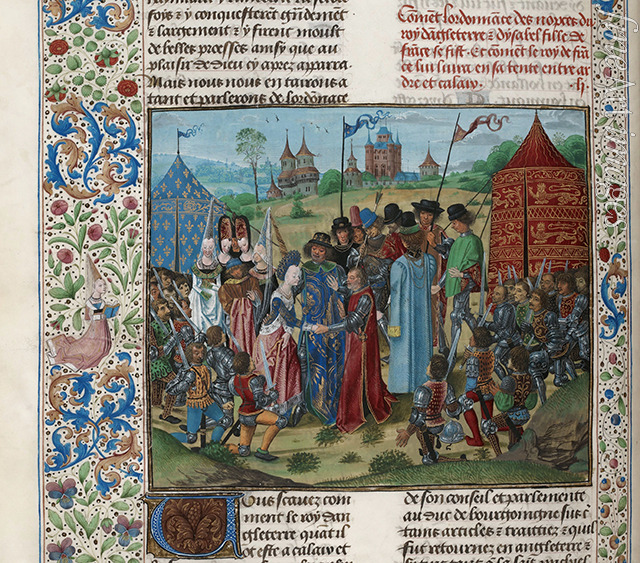 foys ⁊ y conquesterēt grādemēt
⁊ largement ⁊ y firent moult
de belles proesses ainsy que au
plaisir de dieu cy apres apparra
Mais nous nous en tairons a
tant et parlerons de lordōnāce
Commēt lordonnance des nopces du
roy dāgleterre ⁊ dysabel fille de
frāce se fist. Et cōmēt le roy de frā
ce luy liura en sa tente entre ar
dre et calais. lj.
Vous scauez com
ment le roy dan
gleterre quāt il
ot este a calais et
de son conseil et parlement
au duc de bourgoingne sus c̄
tains articles ⁊ traittiez ⁊ quil
fut retournez en angleterre ⁊